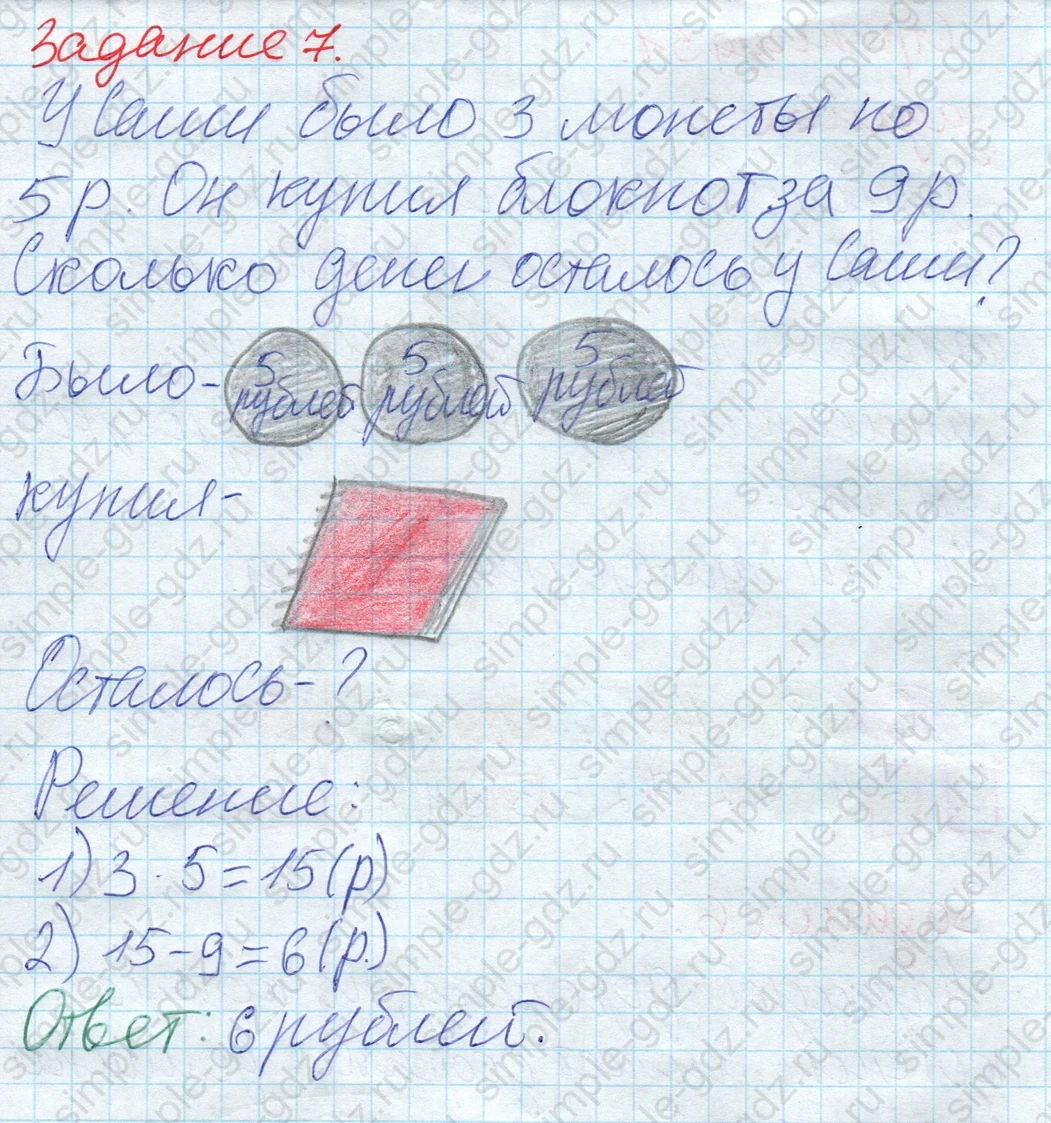 Задание 7.
У Саши было 3 монеты по
5 р. Он купил блокнот за 9 р.
Сколько денег осталось у Саши?
Было- 5 рублей 5 рублей 5 рублей
купил-
Осталось- ?
Решение:
1) 3 · 5 = 15 (р)
2) 15 - 9 = 6 (р.)
Ответ: 6 рублей.
simple-gdz.ru